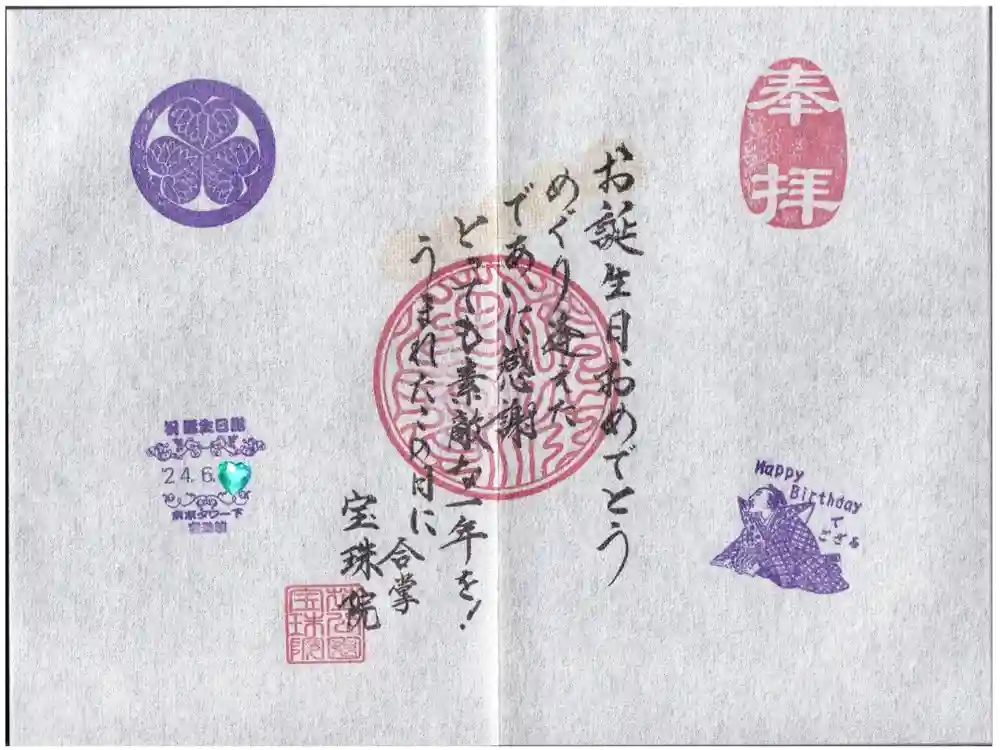 奉拝
お誕生日おめでとう
めぐり逢えた
であいに感謝
とっても素敵な一年を!
うまれたこの日に
合掌
宝珠院
Happy
Birthday
で
ござる
祝誕生日詣
24.6.
東京タワー下
宝珠院
宝珠院